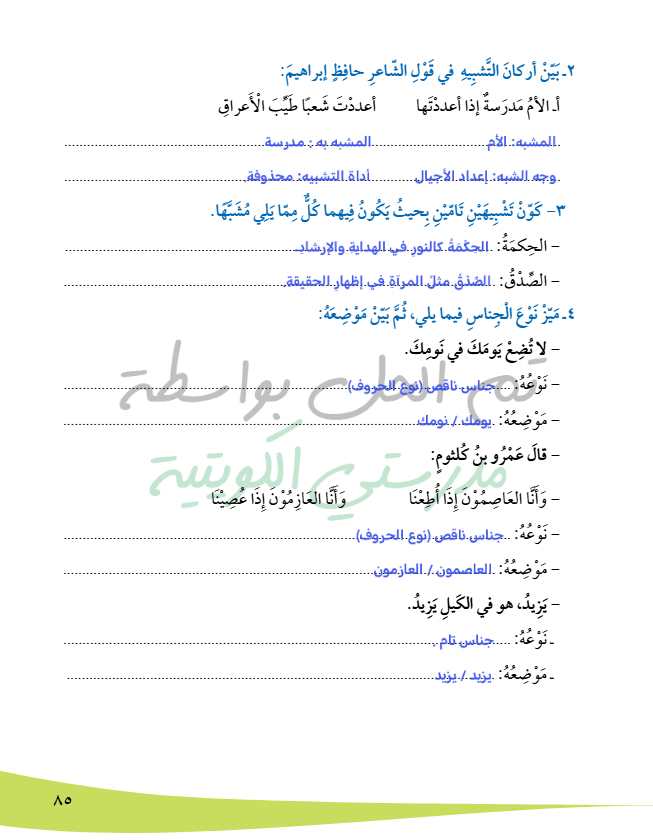 ٢ـ بَيّنْ أركانَ التَّشبِيهِ في قَوْلِ الشّاعرِ حافِظٍ إبراهيمَ:
أـ الأمُ مَدرَسةٌ إذا أعددتَها أعددْتَ شَعبًا طَيِّبَ الْأَعراقِ
المشبه: الأم المشبه به : مدرسة
وجه الشبه: إعداد الأجيال أداة التشبيه: محذوفة
٣- كَوّنْ تَشْبِيهَيْنِ تَامّيْنِ بِحيثُ يَكُونُ فِيهما كُلٌّ مِمّا يَلِي مُشَبَّهًا.
- الحِكمَةُ: الحِكْمَةُ كالنورِ في الهدايةِ والإرشادِ.
- الصِّدْقُ: الصّدْقُ مثلُ المرآةِ في إظهارِ الحقيقةِ.
٤ـ مَيّزْ نَوْعَ الْجِناسِ فيما يلي، ثُمَّ بَيّنْ مَوْضِعَهُ:
- لا تُضِعْ يَومَكَ في نَومِكَ.
- نَوْعُهُ: جناس ناقص (نوع الحروف)
- مَوْضِعُهُ: يومك / نومك
قم الحل بواسطة
- قالَ عَمْرُو بنُ كُلثومٍ:
مدرستي الكويتية
- وَأَنَّا العَاصِمُوْنَ إِذَا أُطِعْنَا وَأَنَّا العَازِمُوْنَ إِذَا عُصِيْنَا
- نَوْعُهُ: جناس ناقص (نوع الحروف)
- مَوْضِعُهُ: العاصمون / العازمون
- يَزِيدُ، هو في الكَيلِ يَزِيدُ.
ـ نَوْعُهُ: جناس تام .
ـ مَوْضِعُهُ: يزيد / يزيد
٨٥